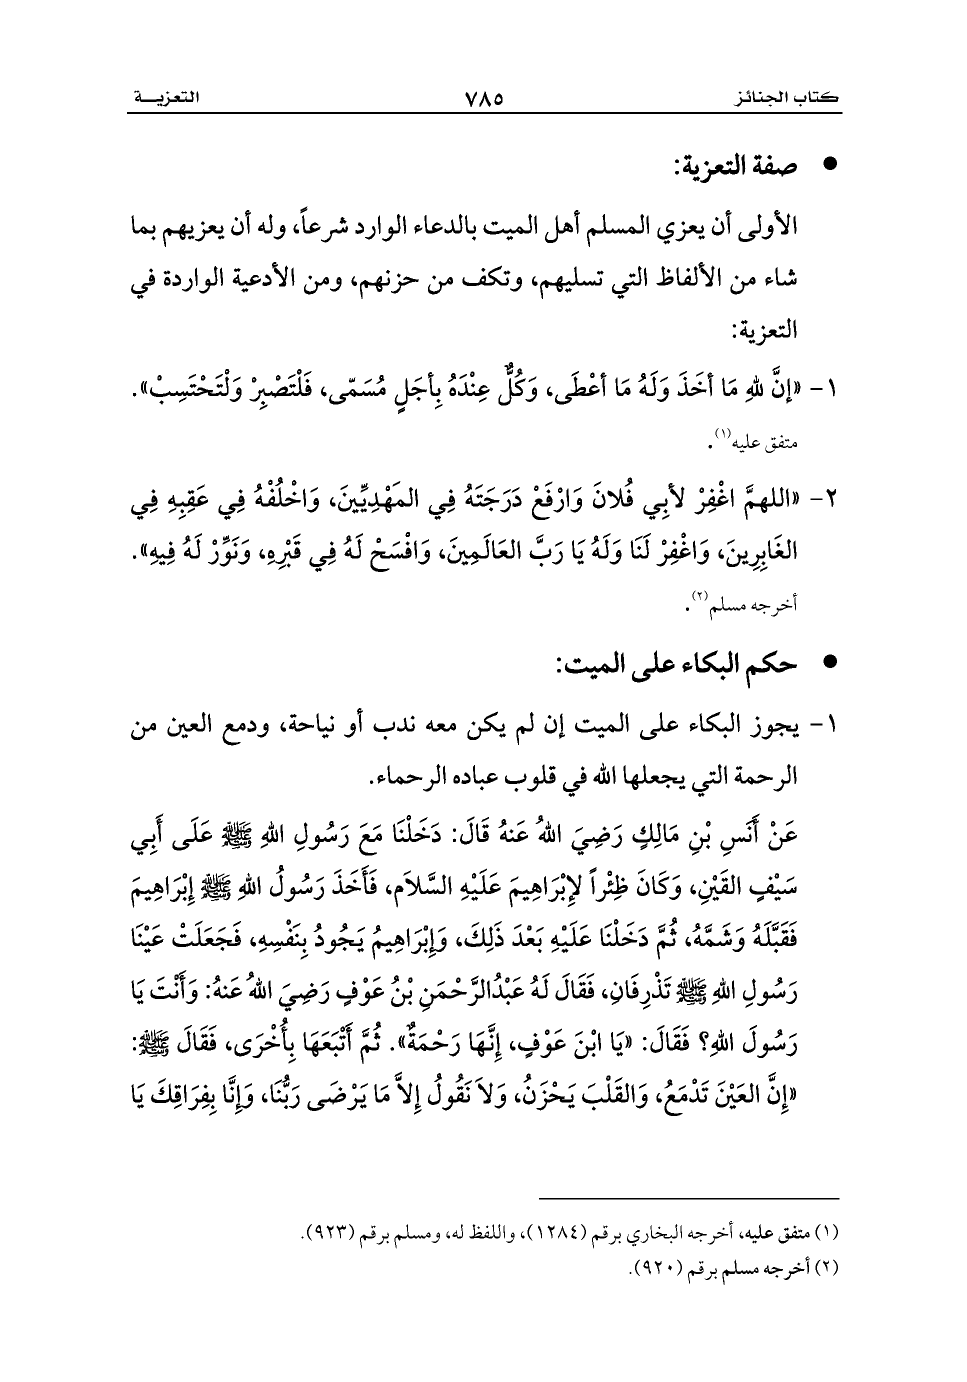 كتاب الجنائز ٧٨٥ التعزيـــة
• صفة التعزية:
الأولى أن يعزي المسلم أهل الميت بالدعاء الوارد شرعاً، وله أن يعزيهم بما
شاء من الألفاظ التي تسليهم، وتكف من حزنهم، ومن الأدعية الواردة في
التعزية:
١- «إنَّ للهِ مَا أخَذَ وَلَهُ مَا أعْطَى، وَكُلٌّ عِنْدَهُ بِأجَلٍ مُسَمّى، فَلْتَصْبِرْ وَلْتَحْتَسِبْ».
متفق عليه(١).
٢- «اللهمَّ اغْفِرْ لأبِي فُلانَ وَارْفَعْ دَرَجَتَهُ فِي المَهْدِيِّينَ، وَاخْلُفْهُ فِي عَقِبِهِ فِي
الغَابِرِينَ، وَاغْفِرْ لَنَا وَلَهُ يَا رَبَّ العَالَمِينَ، وَافْسَحْ لَهُ فِي قَبْرِهِ، وَنَوِّرْ لَهُ فِيهِ».
أخرجه مسلم(٢).
• حكم البكاء على الميت:
١- يجوز البكاء على الميت إن لم يكن معه ندب أو نياحة، ودمع العين من
الرحمة التي يجعلها الله في قلوب عباده الرحماء.
عَنْ أَنَسِ بْنِ مَالِكٍ رَضِيَ اللهُ عَنهُ قَالَ: دَخَلْنَا مَعَ رَسُولِ اللهِ ﷺ عَلَى أبِي
سَيْفٍ القَيْنِ، وَكَانَ ظِئْراً لإِبْرَاهِيمَ عَلَيْهِ السَّلاَم، فَأَخَذَ رَسُولُ اللهِ ﷺ إِبْرَاهِيمَ
فَقَبَّلَهُ وَشَمَّهُ، ثُمَّ دَخَلْنَا عَلَيْهِ بَعْدَ ذَلِكَ، وَإِبْرَاهِيمُ يَجُودُ بِنَفْسِهِ، فَجَعَلَتْ عَيْنَا
رَسُولِ اللهِ ﷺ تَذْرِفَانِ، فَقَالَ لَهُ عَبْدُالرَّحْمَنِ بْنُ عَوْفٍ رَضِيَ اللهُ عَنهُ: وَأَنْتَ يَا
رَسُولَ اللهِ؟ فَقَالَ: «يَا ابْنَ عَوْفٍ، إِنَّهَا رَحْمَةٌ». ثُمَّ أَتْبَعَهَا بِأُخْرَى، فَقَالَ ﷺ:
«إِنَّ العَيْنَ تَدْمَعُ، وَالقَلْبَ يَحْزَنُ، وَلاَ نَقُولُ إِلاَّ مَا يَرْضَى رَبُّنَا، وَإِنَّا بِفِرَاقِكَ يَا
(١) متفق عليه، أخرجه البخاري برقم (١٢٨٤)، واللفظ له، ومسلم برقم (٩٢٣).
(٢) أخرجه مسلم برقم (٩٢٠).